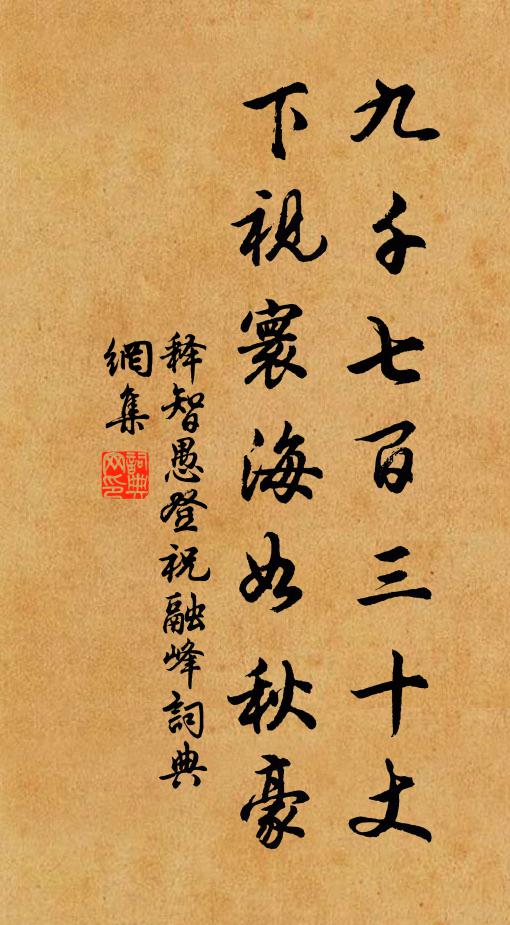 九千七百三十丈
下視寰海如秋豪
释智愚登祝融峰詞典
網集
詞典網印